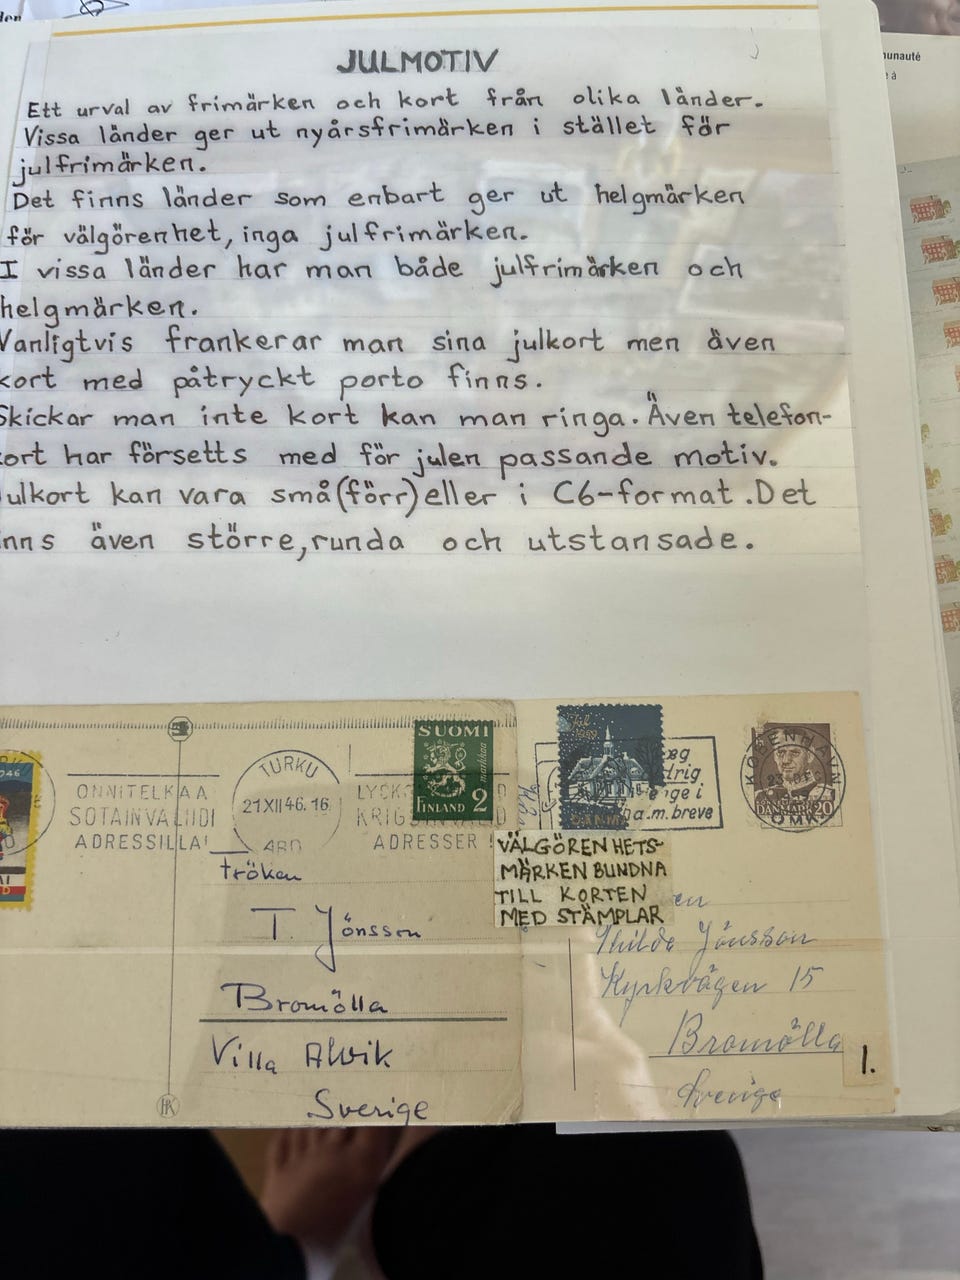 JULMOTIV
Ett urval av frimärken och kort från olika länder.
Vissa länder ger ut nyårsfrimärken i stället för
julfrimärken.
Det finns länder som enbart ger ut helgmärken
för välgörenhet, inga julfrimärken.
I vissa länder har man både julfrimärken och
helgmärken.
Vanligtvis frankerar man sina julkort men även
kort med påtryckt porto finns.
Skickar man inte kort kan man ringa. Även telefon-
ort har försetts med för julen passande motiv.
ulkort kan vara små (förr) eller i C6-format. Det
nns även större, runda och utstansade.
ONNITELKAA
SOTAINVALIIDI
ADRESSILLA!
TURKU
21 XII 46. 16
ÅBO
KRIGSINVALID
ADRESSER
SUOMI
markkaa
FINLAND 2
Jul
DANMARK
drig
ge i
a.m. breve
KØBENHAVN
OMK.
DANMARK 20
VÄLGÖRENHETS-
MÄRKEN BUNDNA
TILL KORTEN
MED STÄMPLAR
fröken
T. Jönsson
Bromölla
Villa Alvik
Sverige
en
Jönsson
Kyrkvägen 15
Bromölla
Sverige
1.
unauté